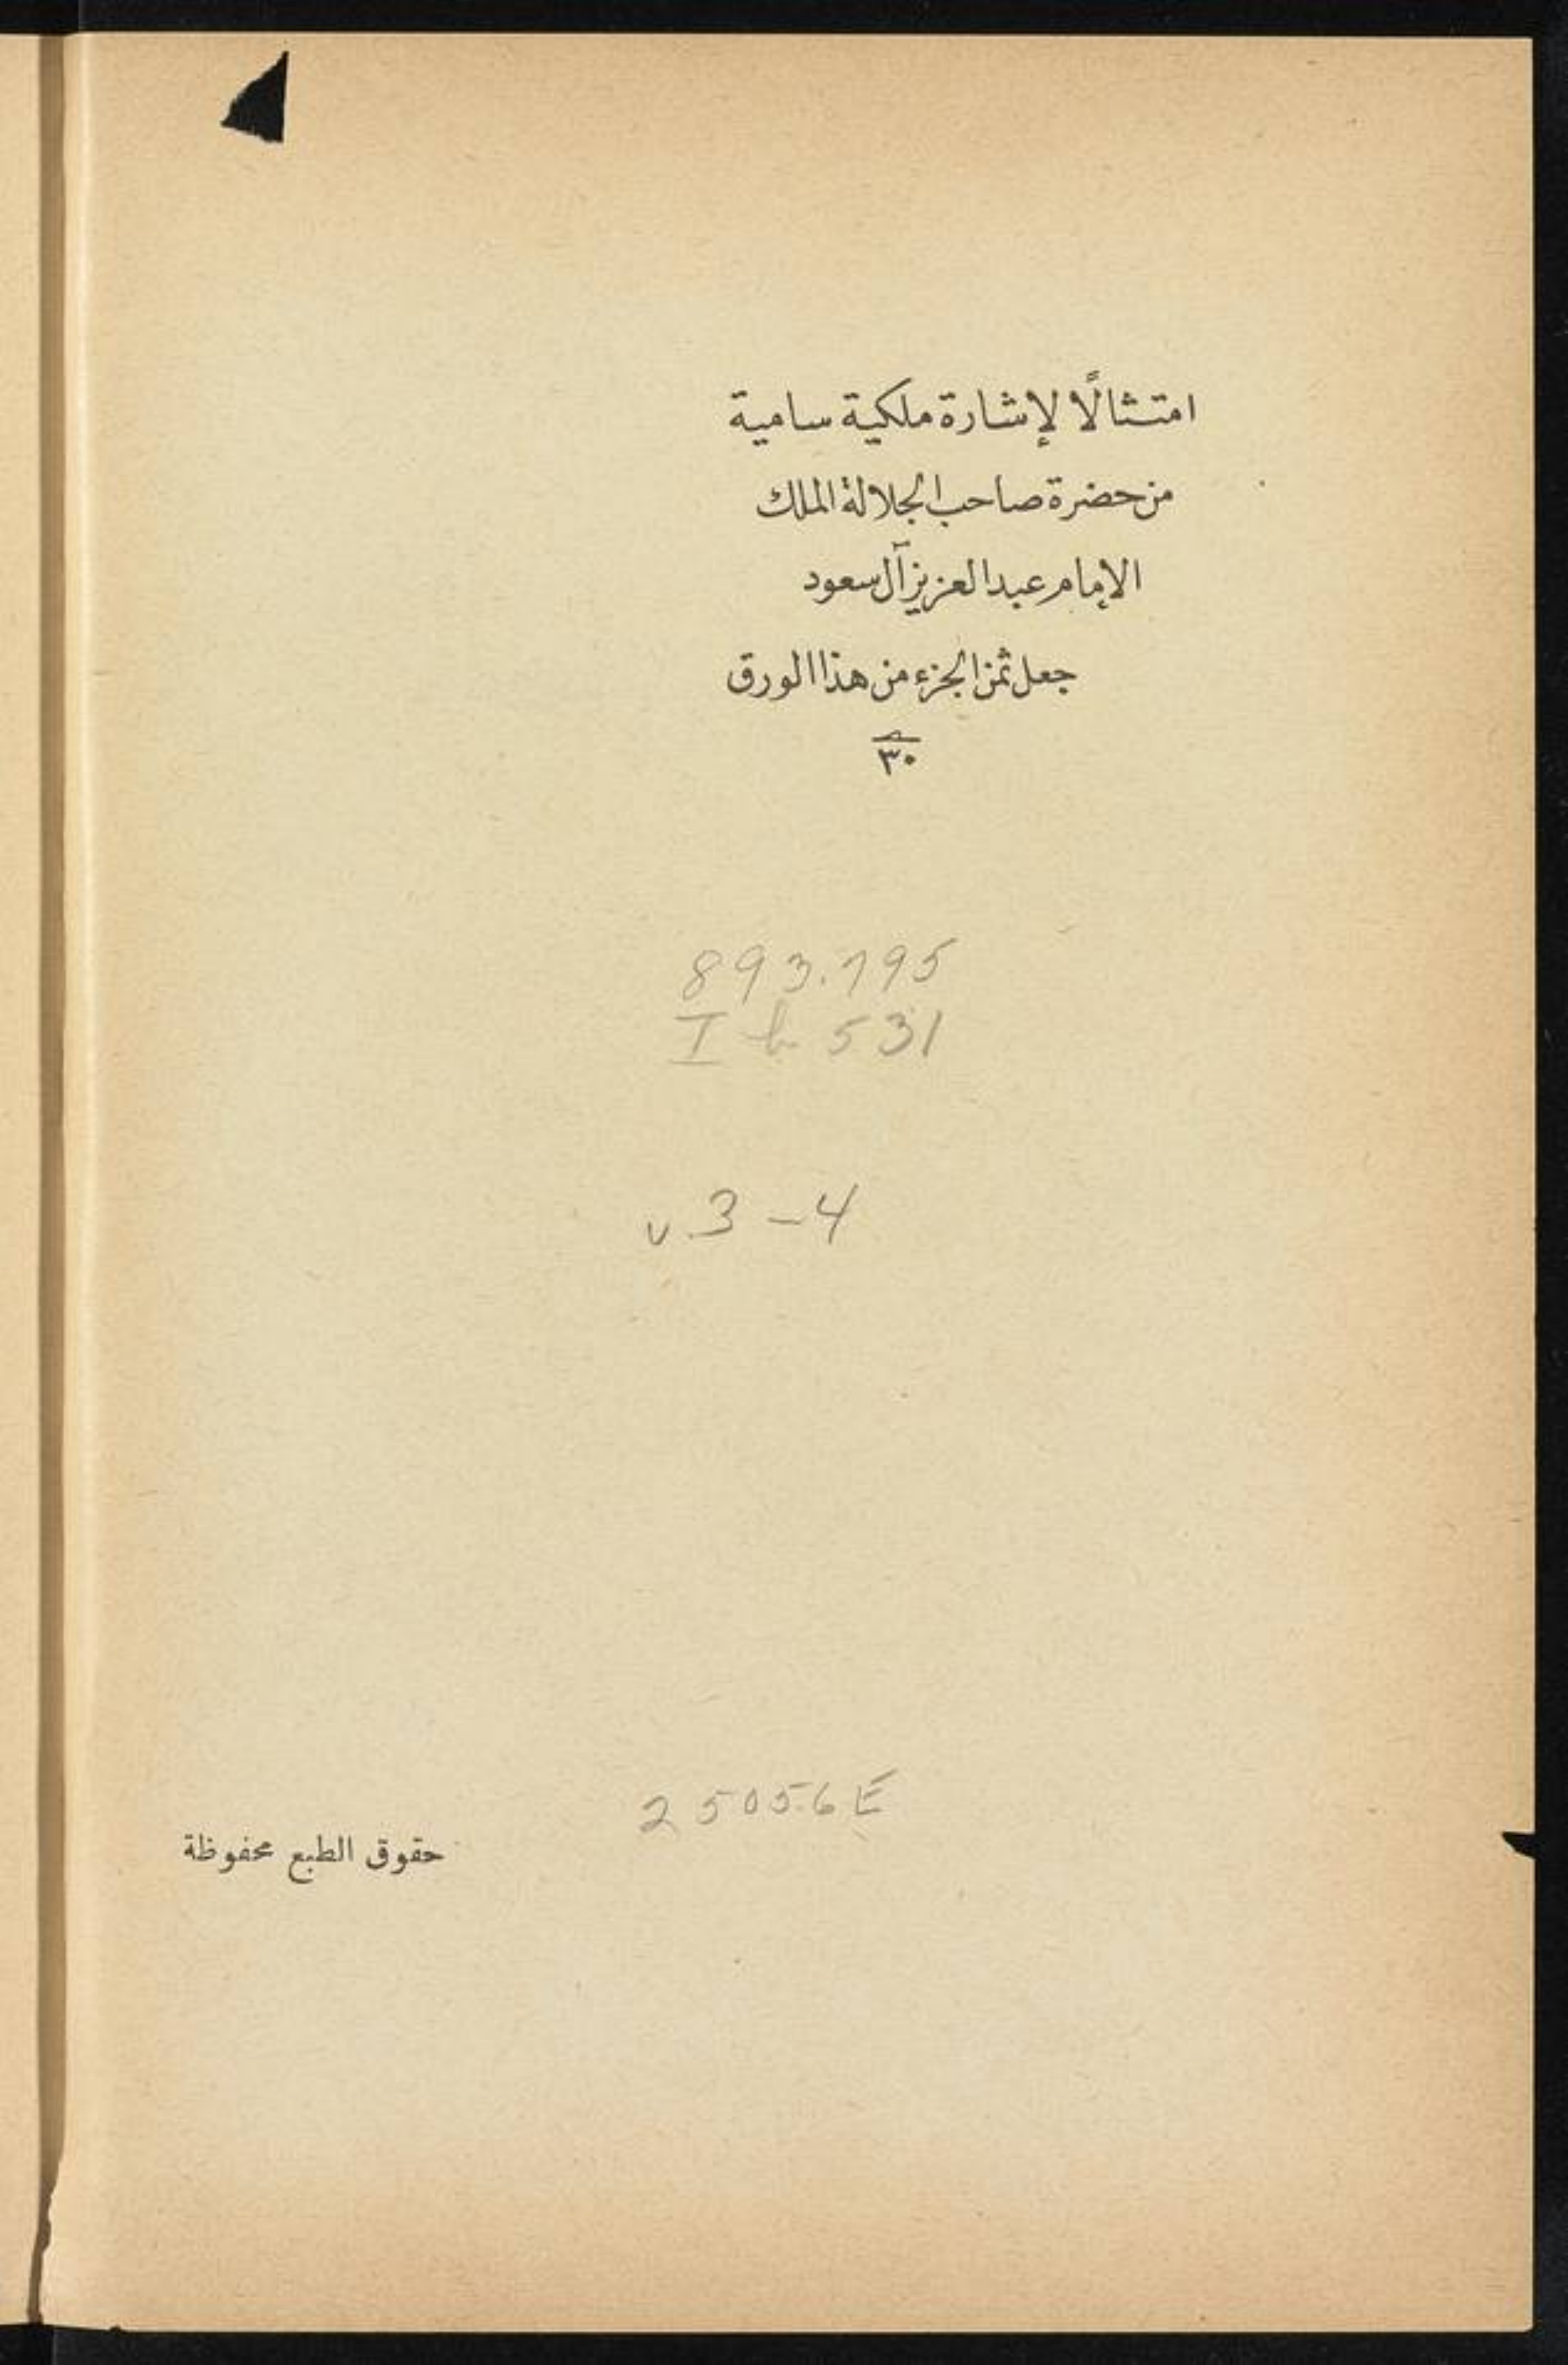 امتثالًا لإشارة ملكية سامية
من حضرة صاحب الجلالة الملك
الإمام عبد العزيز آل سعود
جعل ثمن الجزء من هذا الورق
٣٠
893.795
I b 531
v. 3-4
25056 E
حقوق الطبع محفوظة